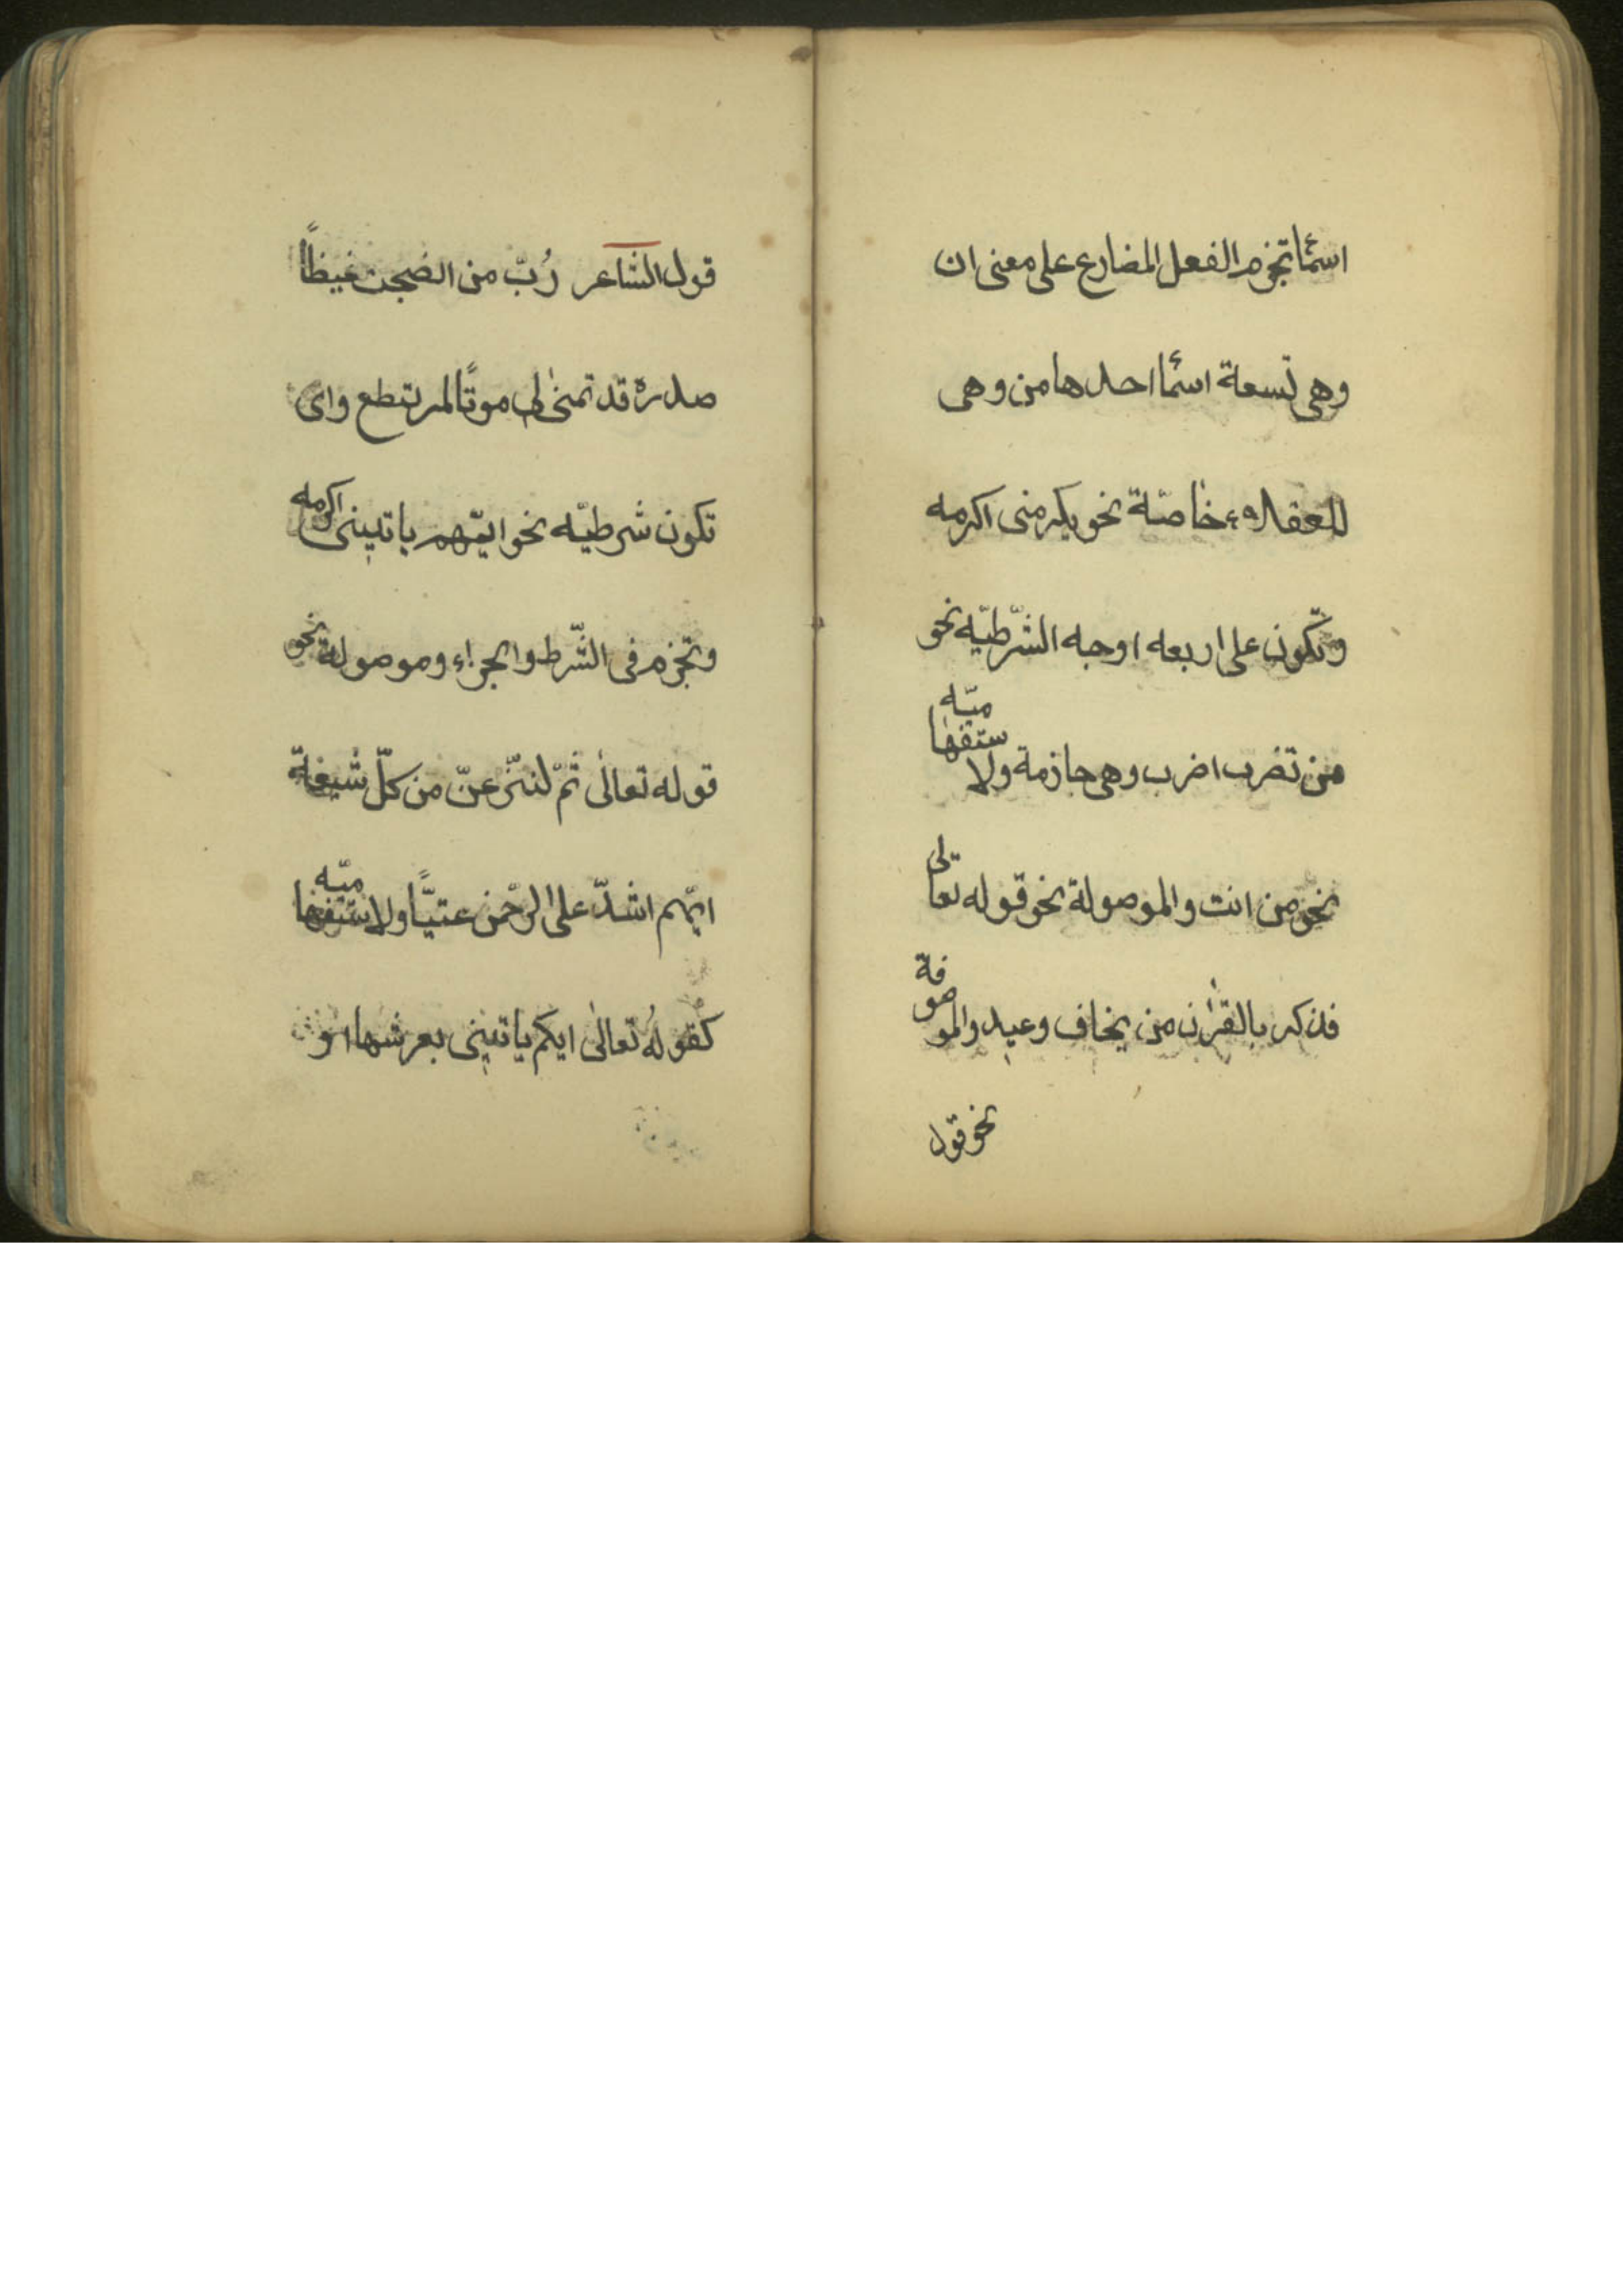 اسمًأ تجزم الفعل المضارع على معنى ان
وهى تسعة اسمًأ احدها من وهى
للعقلاء خاصّة نحو يكرمنى اكرمه
وتكون على اربعه اوجه الشّرطيّه نحو
من تضرب اضرب وهى جازمة ولا ستفها ميّه
نحو من انت والموصولة نحو قوله تعالى
فذكر بالقرٰان من يخاف وعيد والمو صوفة
نحو قول
قول الشاعر رُبّ من انضجت غيظاً
صدرة قد تمنىٰ لى موتًا لمر تطع واى
تكون شرطيّه نحو ايّهم ياتينى اكرمه
وتجزم فى الشّرط والجزاء وموصولة نحو
قوله تعالىٰ ثمّ لننزّعنّ من كلّ شيعة
ايّهم اشدّ على الرحّمن عتيًّا ولا ستفها ميّه
كقولهُ تعالىٰ ايكم ياتينى بعرشها او